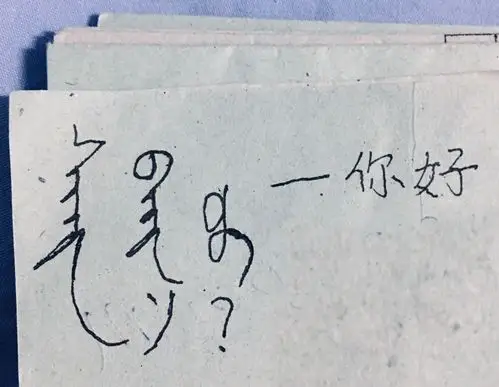 ᠰᠠᠶᠢᠨ
ᠪᠠᠶᠢᠨ᠎ᠠ
ᠤᠤ?
—你好